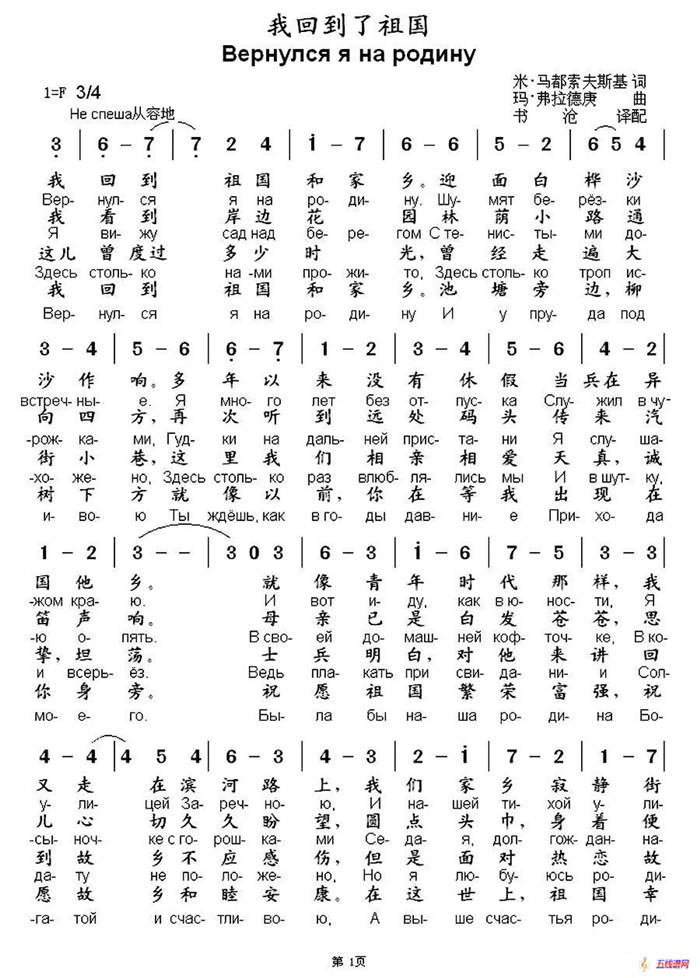 我回到了祖国
Вернулся я на родину
米·马都索夫斯基 词
1=F 3/4
玛·弗拉德庚 曲
Не спеша从容地
书 沧 译配
3 | 6 - 7 | 7 2 4 | i - 7 | 6 - 6 | 5 - 2 | 6 5 4 |
我 回 到 祖 国 和 家 乡。迎 面 白 桦 沙
Вер- нул- ся я на ро- ди- ну. Шу- мят бе- рёз- ки
我 看 到 岸 边 花 园 林 荫 小 路 通
Я ви- жу сад над бе- ре- гом С те- нис- ты- ми до-
这儿 曾 度过 多 少 时 光,曾 经 走 遍 大
Здесь столь- ко на -ми про- жи- то, Здесь столь- ко троп ис-
我 回 到 祖 国 和 家 乡。池 塘 旁 边,柳
Вер- нул- ся я на ро- ди- ну И у пру- да под
3 - 4 | 5 - 6 | 6 - 7 | 1 - 2 | 3 - 4 | 6 - 5 | 4 - 2 |
沙 作 响。多 年 以 来 没 有 休 假 当 兵在 异
встреч- ны- е. Я мно- го лет без от- пус- ка Слу- жил в чу-
向 四 方,再 次 听 到 远 处 码 头 传 来 汽
-рож- ка- ми, Гуд- ки на даль- ней прис- та- ни Я слу- ша-
街 小 巷,这 里 我 们 相 亲 相 爱 天 真,诚
-хо- же- но, Здесь столь- ко раз влюб- ля- лись мы И в шут- ку,
树 下 方 就 像 以 前,你 在 等 我 出 现 在
и- во- ю Ты ждёшь, как в го- ды дав- ни- е При- хо- да
1 - 2 | 3 - - | 3 0 3 | 6 - 3 | i - 6 | 7 - 5 | 3 - 3 |
国 他 乡。 就 像 青 年 时 代 那 样,我
-жом кра- ю. И вот и- ду, как в ю- нос- ти, Я
笛 声 响。 母 亲 已 是 白 发 苍 苍,思
-ю о- пять. В сво- ей до- маш- ней коф- точ- ке, В ко-
挚,坦 荡。 士 兵 明 白,对 他 来 讲 回
и всерь- ёз. Ведь пла- кать при сви- дани- и Сол-
你 身 旁。 祝 愿 祖 国 繁 荣 富 强,祝
мо- е- го. Бы- ла бы на- ша ро- ди- на Бо-
4 - 4 | 4 5 4 | 6 - 3 | 4 - 3 | 2 - i | 7 - 2 | 1 - 7 |
又 走 在 滨 河 路 上,我 们 家 乡 寂 静 街
у- ли- цей За- реч- но- ю, И на- шей ти- хой у- ли-
儿 心 切 久 久 盼 望,圆 点 头 巾,身 着 便
-сы- ноч- ке с го- рош- ка- ми Се- да- я, дол- гож- дан- на-
到 故 乡 不 应 感 伤,但 是 面 对 热 恋 故
да- ту не по- ло- же- но, Но я лю- бу- юсь ро- ди-
愿 故 乡 和 睦 安 康。在 这 世 上,祖 国 幸
-га- той и счас- тли- во- ю, А вы- ше счас- тья ро- ди-
第 1页
五线谱网